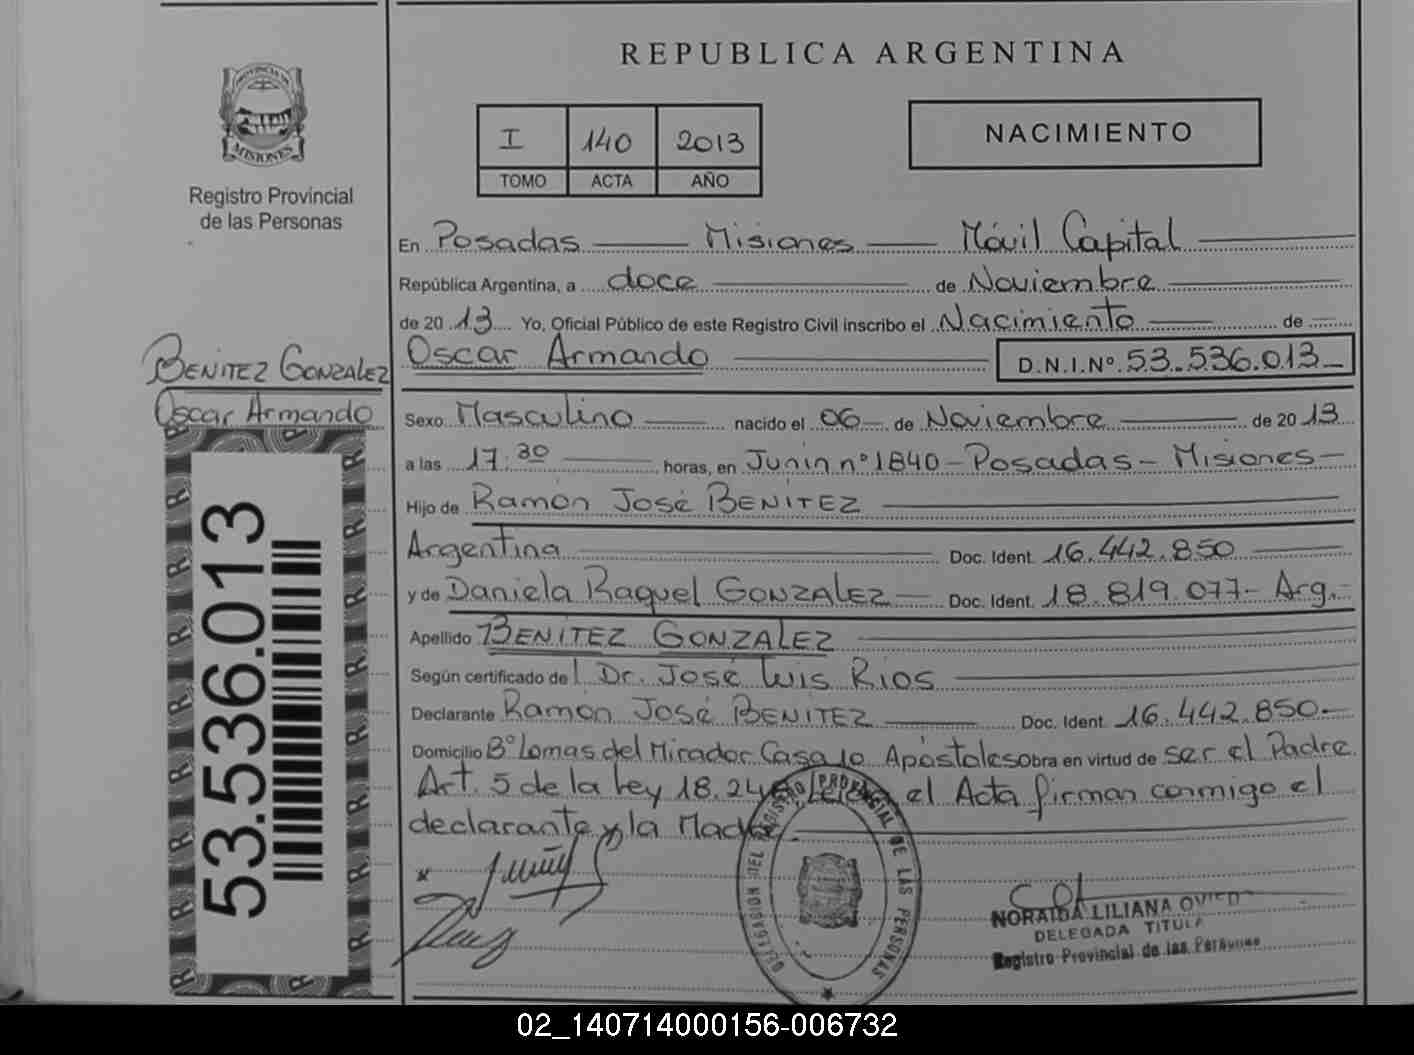 REPUBLICA ARGENTINA
PROVINCIA DE
MISIONES
Registro Provincial
de las Personas
I 140 2013
TOMO ACTA AÑO
NACIMIENTO
En Posadas Misiones Móvil Capital
República Argentina, a doce de Noviembre
de 2013 Yo, Oficial Público de este Registro Civil inscribo el Nacimiento de
Oscar Armando D.N.I.Nº. 53.536.013
BENITEZ GONZALEZ
Oscar Armando
Sexo Masculino nacido el 06 de Noviembre de 2013
a las 17:30 horas, en Junín nº 1840 - Posadas - Misiones -
Hijo de Ramón José BENÍTEZ
Argentina Doc. Ident. 16.442.850
y de Daniela Raquel GONZALEZ Doc. Ident. 18.819.077- Arg.-
Apellido BENÍTEZ GONZALEZ
Según certificado del Dr. José Luis Rios
Declarante Ramón José BENITEZ Doc. Ident. 16.442.850-
Domicilio Bº Lomas del Mirador Casa 10 Apóstoles Obra en virtud de ser el Padre
Art. 5 de la Ley 18.248 el Acta firman conmigo el
declarante y la Madre.
53.536.013
DELEGACION DEL REGISTRO PROVINCIAL DE LAS PERSONAS
NORAIDA LILIANA OVIEDO
DELEGADA TITULA
Registro Provincial de las Personas
02_140714000156-006732